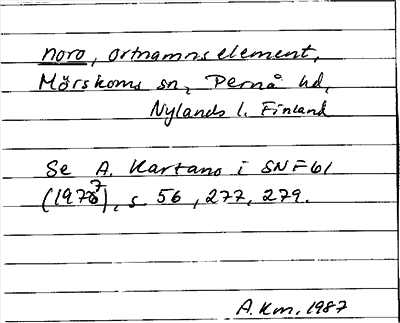 noro, ortnamnselement,
Mörskoms sn, Pernå hd,
Nylands l. Finland
Se A. Kartano i SNF 61
(1977), s 56, 277, 279.
A.Km, 1987